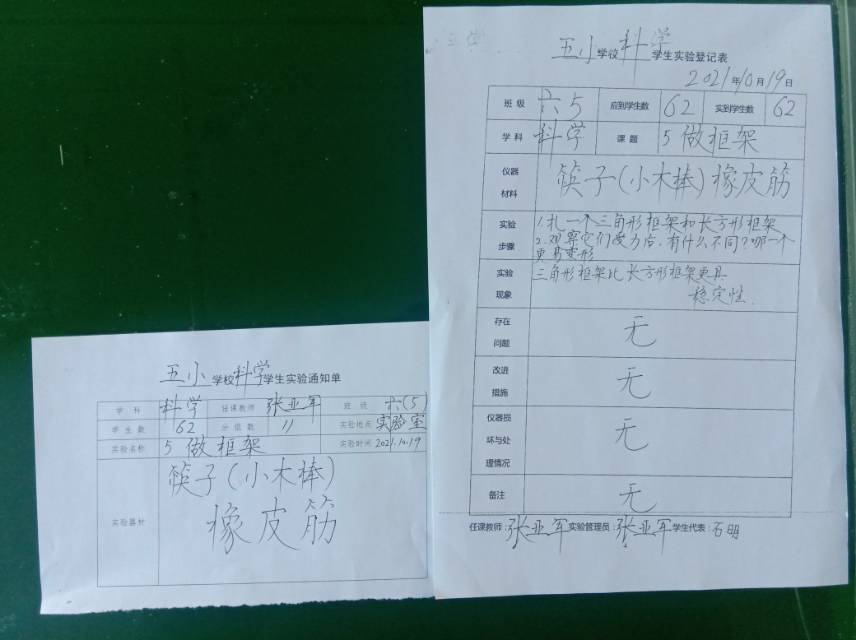 五小学校科学学生实验通知单
学科 科学 任课教师 张亚军 班级 六(5)
学生数 62 分组数 11 实验地点 实验室
实验名称 5 做框架 实验时间 2021.10.19
实验器材 筷子(小木棒)
橡皮筋
五小学校科学学生实验登记表
2021年10月19日
班级 六5 应到学生数 62 实到学生数 62
学科 科学 课题 5 做框架
仪器材料 筷子(小木棒)橡皮筋
实验步骤 1.扎一个三角形框架和长方形框架
2.观察它们受力后,有什么不同?哪一个
更易变形
实验现象 三角形框架比长方形框架更具
稳定性.
存在问题 无
改进措施 无
仪器损坏与处理情况 无
备注 无
任课教师:张亚军 实验管理员:张亚军 学生代表:石明